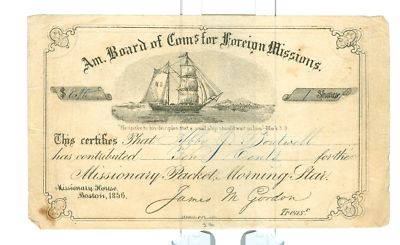 Am. Board of Coms for Foreign Missions.
1 Share
"He spake to his disciples that a small ship should wait on him" Mark 3.9
This certifies That J. Boutwell
has contributed Ten Cents for the
Missionary Packet, Morning Star.
Missionary House,
Boston, 1856.
James M. Gordon
Treasr.